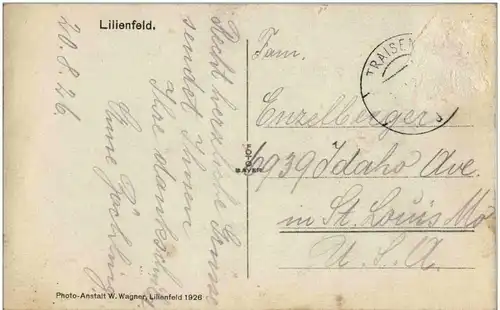 Lilienfeld.
20. 8. 26.
Recht herzliche Grüsse
sendet Ihnen
Ihre dankschuld.
Anna
Photo-Anstalt W. Wagner, Lilienfeld 1926
TRAISEN
Fam.
Enzelberger
6939 Idaho Ave.
in St. Louis Mo
U. S. A.